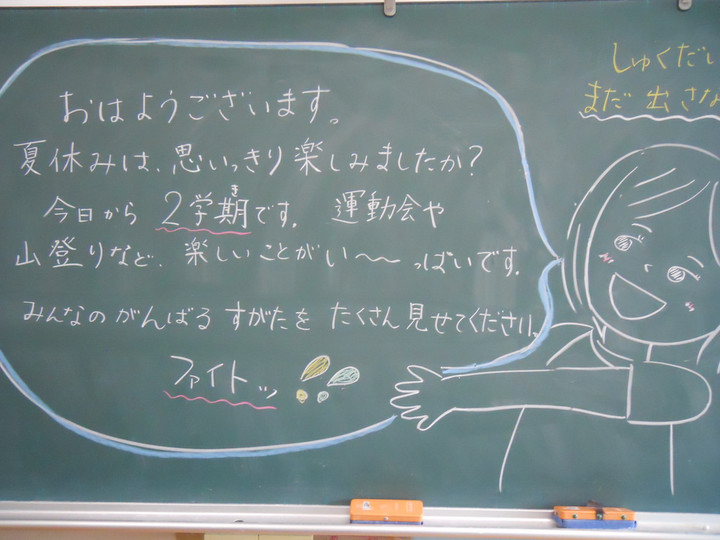 おはようございます。
夏休みは、思いっきり楽しみましたか?
今日から2学期です。運動会や
山登りなど、楽しいことがい〜っぱいです。
みんなのがんばるすがたをたくさん見せてください。
ファイトッ
しゅくだい
まだ出さな